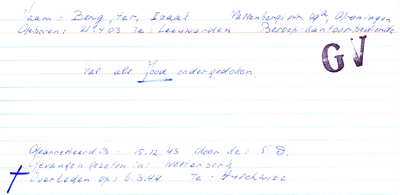 Naam : Berg, ter, Izaak Pallenbergs str. 49a, Groningen
Geboren: 21.4.03 Te: Leeuwarden Beroep: Kantoorbediende
GV
Zat als Jood ondergedoken.
Gearresteerd: 15.12.43 door de: S.D.
Gevangen gezeten in: Westerbork
Overleden op: 6.3.44 Te - Auschwitz